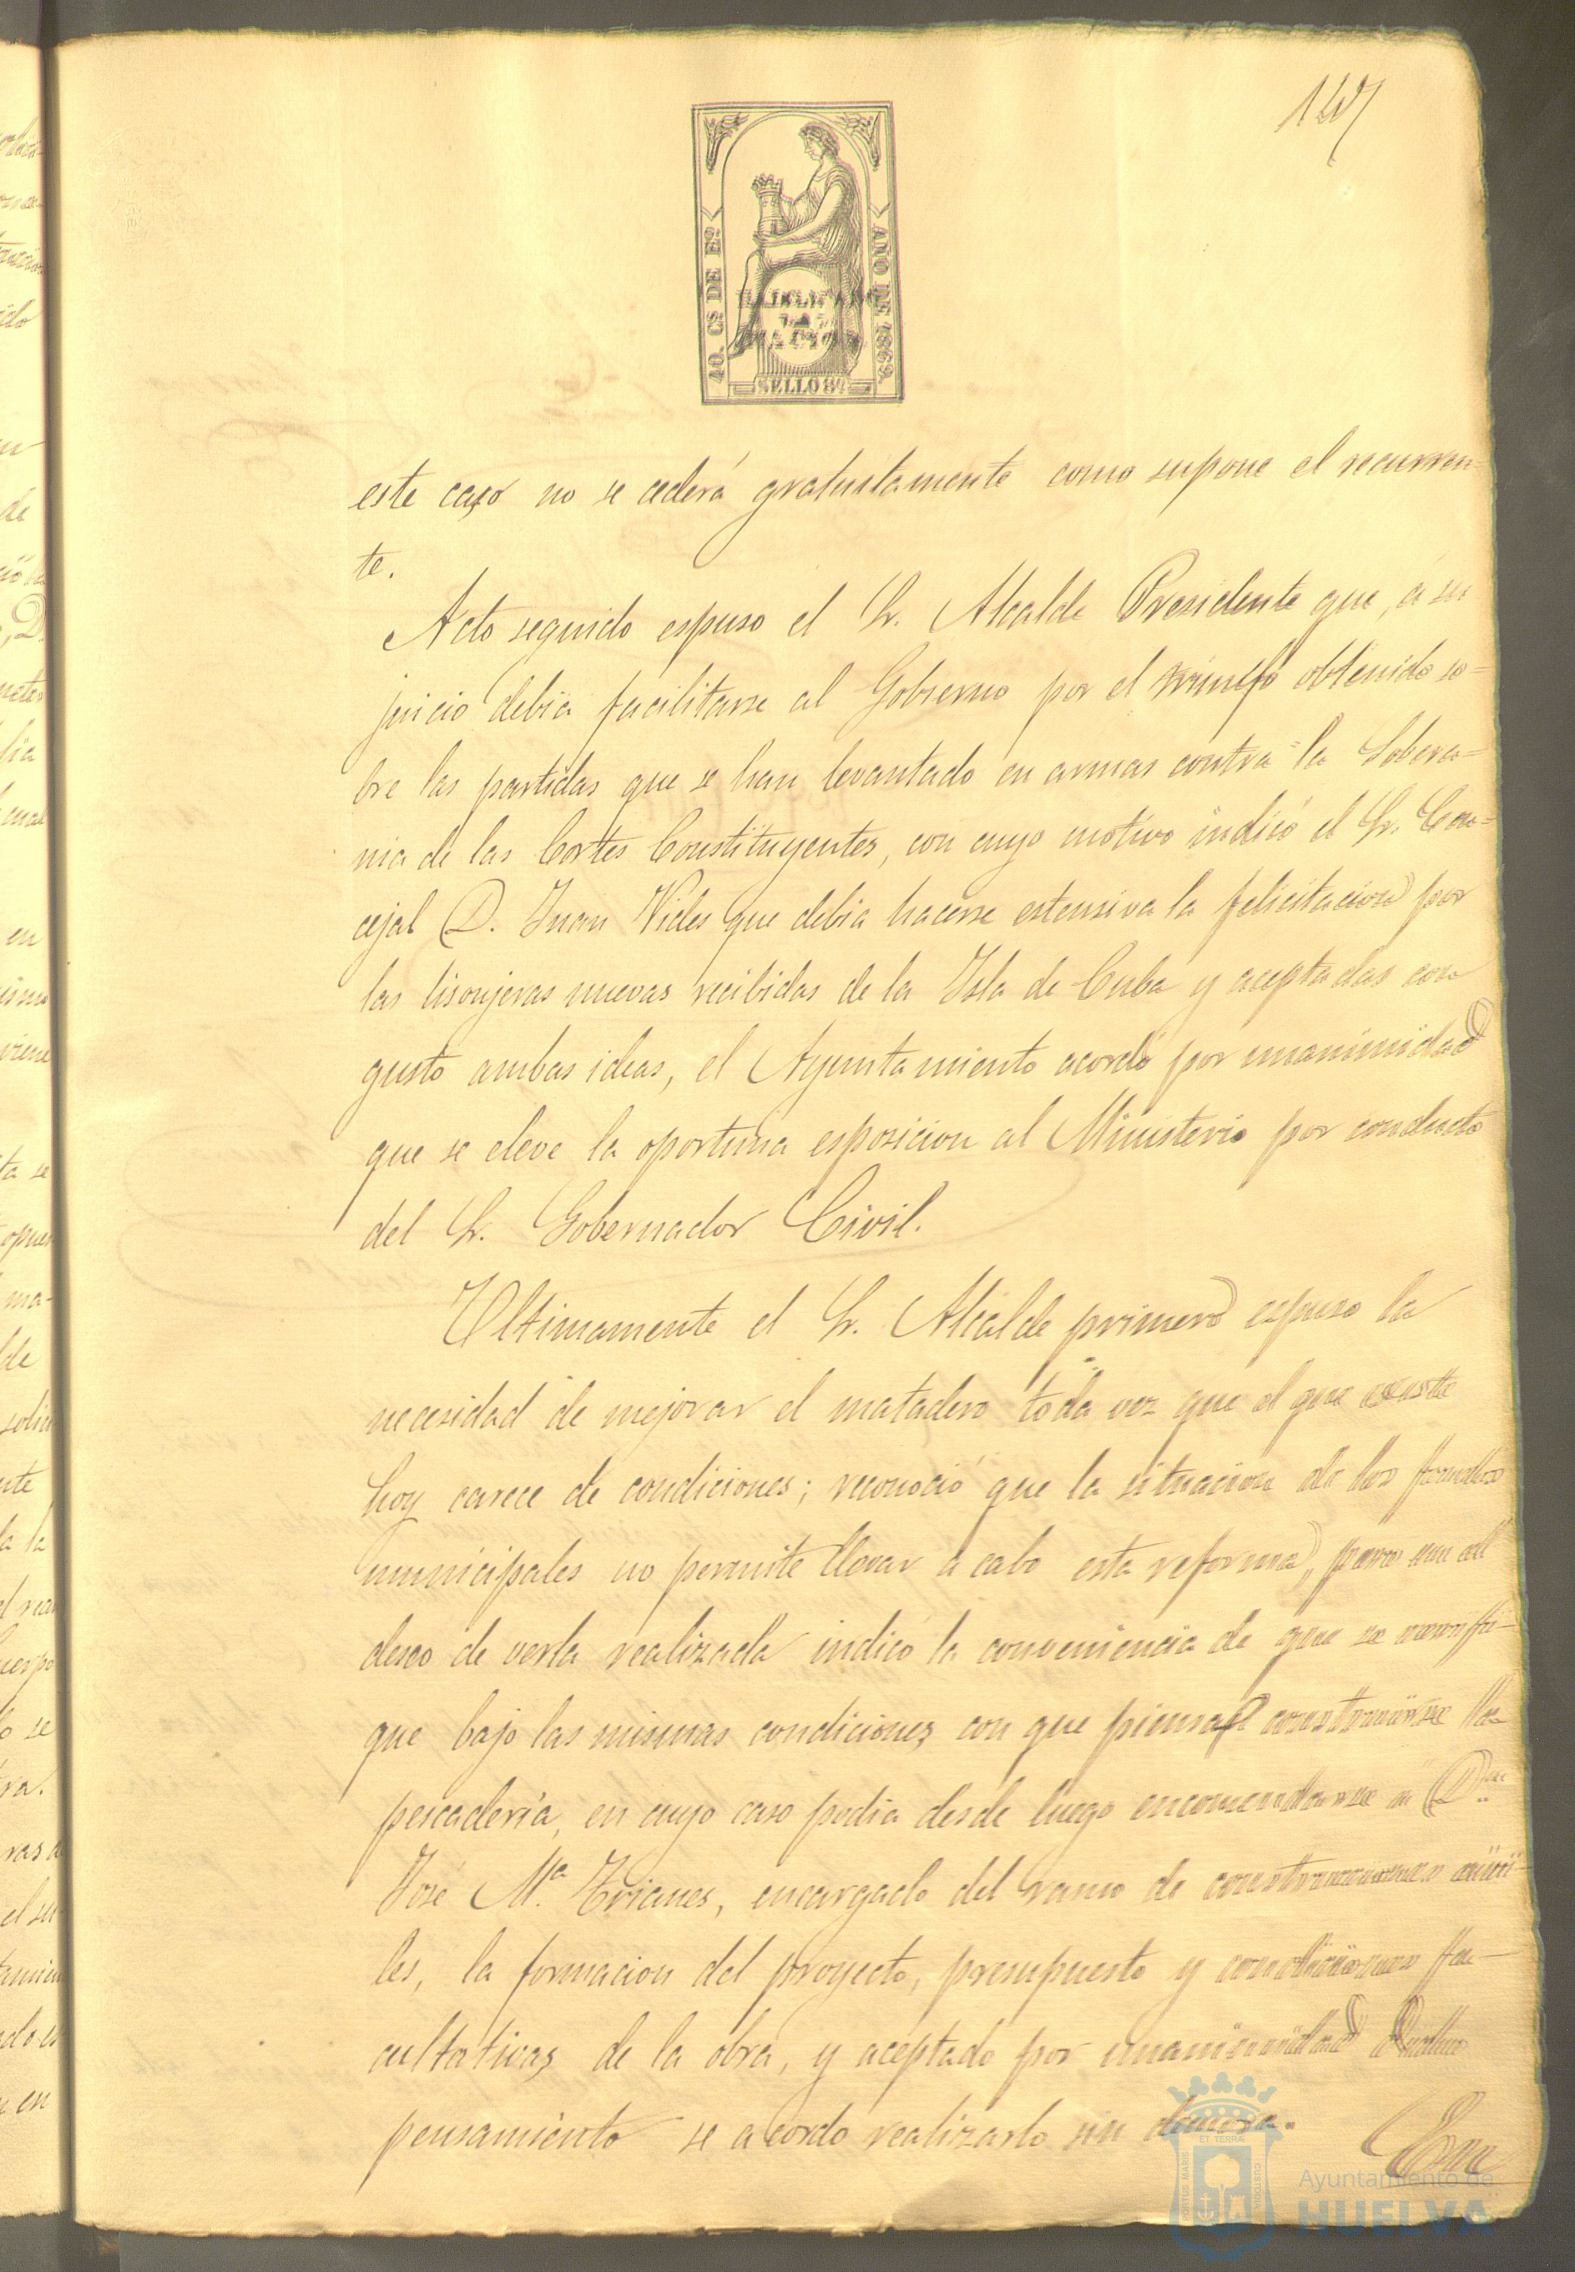 147
40. Cs DE Eo
AÑO DE 1869.
HABILITADO
POR LA
NACION
SELLO 8º
este caso no se cederá gratuitamente como supone el recurren-
te.
Acto seguido espuso el Sr. Alcalde Presidente que, á su
juicio debia facilitarse al Gobierno por el triunfo obtenido so-
bre las partidas que se han levantado en armas contra la Sobera-
nia de las Cortes Constituyentes, con cuyo motivo indicó el Sr. Con-
cejal D. Juan Vides que debia hacerse estensiva la felicitacion por
las lisonjeras nuevas recibidas de la Isla de Cuba y aceptadas con
gusto ambas ideas, el Ayuntamiento acordó por unanimidad
que se eleve la oportuna esposicion al Ministerio por conducto
del Sr. Gobernador Civil.
Ultimamente el Sr. Alcalde primero espuso la
necesidad de mejorar el matadero toda vez que el que existe
hoy carece de condiciones; reconoció que la situacion de los fondos
municipales no permite llevar a cabo esta reforma, pero en el
deseo de verla realizada indicó la conveniencia de que se verifi-
que bajo las mismas condiciones con que piensa construirse la
pescadería, en cuyo caso podia desde luego encomendarse a Dn
José Mª Trianes, encargado del ramo de construcciones civi-
les, la formacion del proyecto, presupuesto y condiciones fa-
cultativas de la obra, y aceptado por unanimidad dicho
pensamiento se acordó realizarlo sin demora.
En
PORTUS MARIS ET TERRÆ CUSTODIA
Ayuntamiento de
HUELVA